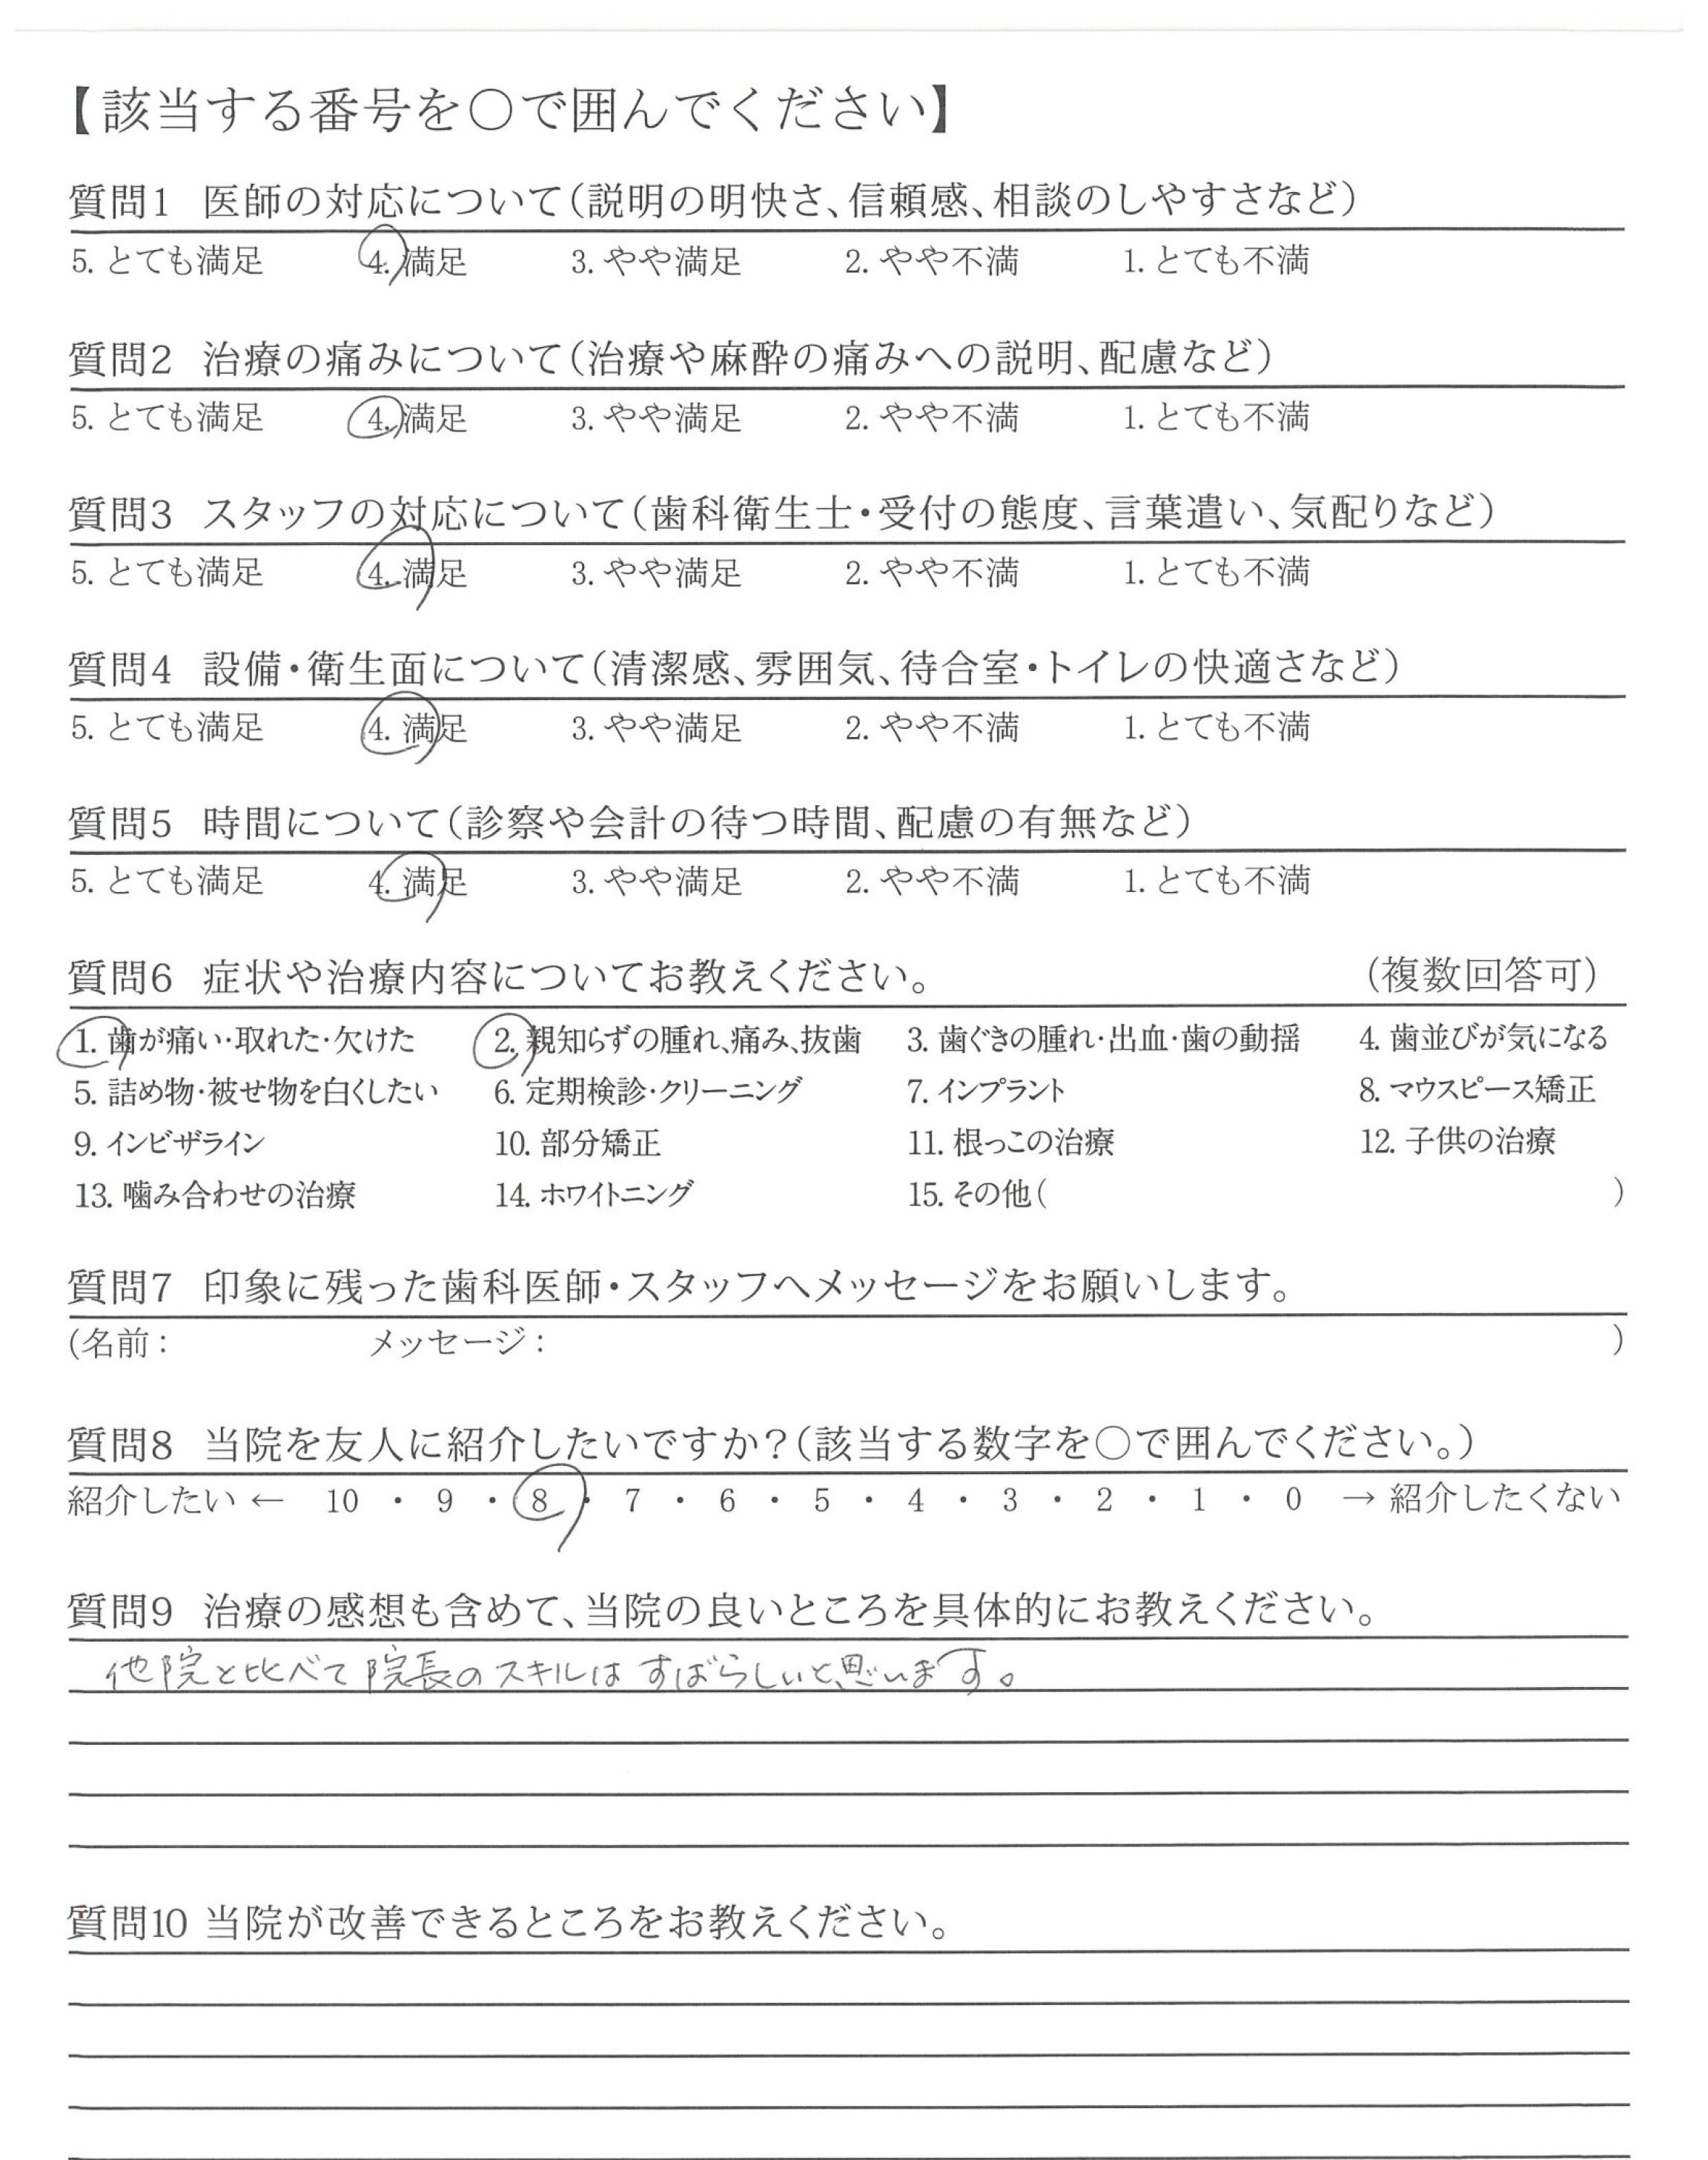 【該当する番号を○で囲んでください】
質問1 医師の対応について(説明の明快さ、信頼感、相談のしやすさなど)
5. とても満足 4. 満足 3. やや満足 2. やや不満 1. とても不満
質問2 治療の痛みについて(治療や麻酔の痛みへの説明、配慮など)
5. とても満足 4. 満足 3. やや満足 2. やや不満 1. とても不満
質問3 スタッフの対応について(歯科衛生士・受付の態度、言葉遣い、気配りなど)
5. とても満足 4. 満足 3. やや満足 2. やや不満 1. とても不満
質問4 設備・衛生面について(清潔感、雰囲気、待合室・トイレの快適さなど)
5. とても満足 4. 満足 3. やや満足 2. やや不満 1. とても不満
質問5 時間について(診察や会計の待つ時間、配慮の有無など)
5. とても満足 4. 満足 3. やや満足 2. やや不満 1. とても不満
質問6 症状や治療内容についてお教えください。 (複数回答可)
1. 歯が痛い・取れた・欠けた 2. 親知らずの腫れ、痛み、抜歯 3. 歯ぐきの腫れ・出血・歯の動揺 4. 歯並びが気になる
5. 詰め物・被せ物を白くしたい 6. 定期検診・クリーニング 7. インプラント 8. マウスピース矯正
9. インビザライン 10. 部分矯正 11. 根っこの治療 12. 子供の治療
13. 噛み合わせの治療 14. ホワイトニング 15. その他( )
質問7 印象に残った歯科医師・スタッフへメッセージをお願いします。
(名前: メッセージ: )
質問8 当院を友人に紹介したいですか?(該当する数字を○で囲んでください。)
紹介したい ← 10 ・ 9 ・ 8 ・ 7 ・ 6 ・ 5 ・ 4 ・ 3 ・ 2 ・ 1 ・ 0 → 紹介したくない
質問9 治療の感想も含めて、当院の良いところを具体的にお教えください。
他院と比べて院長のスキルはすばらしいと思います。
質問10 当院が改善できるところをお教えください。